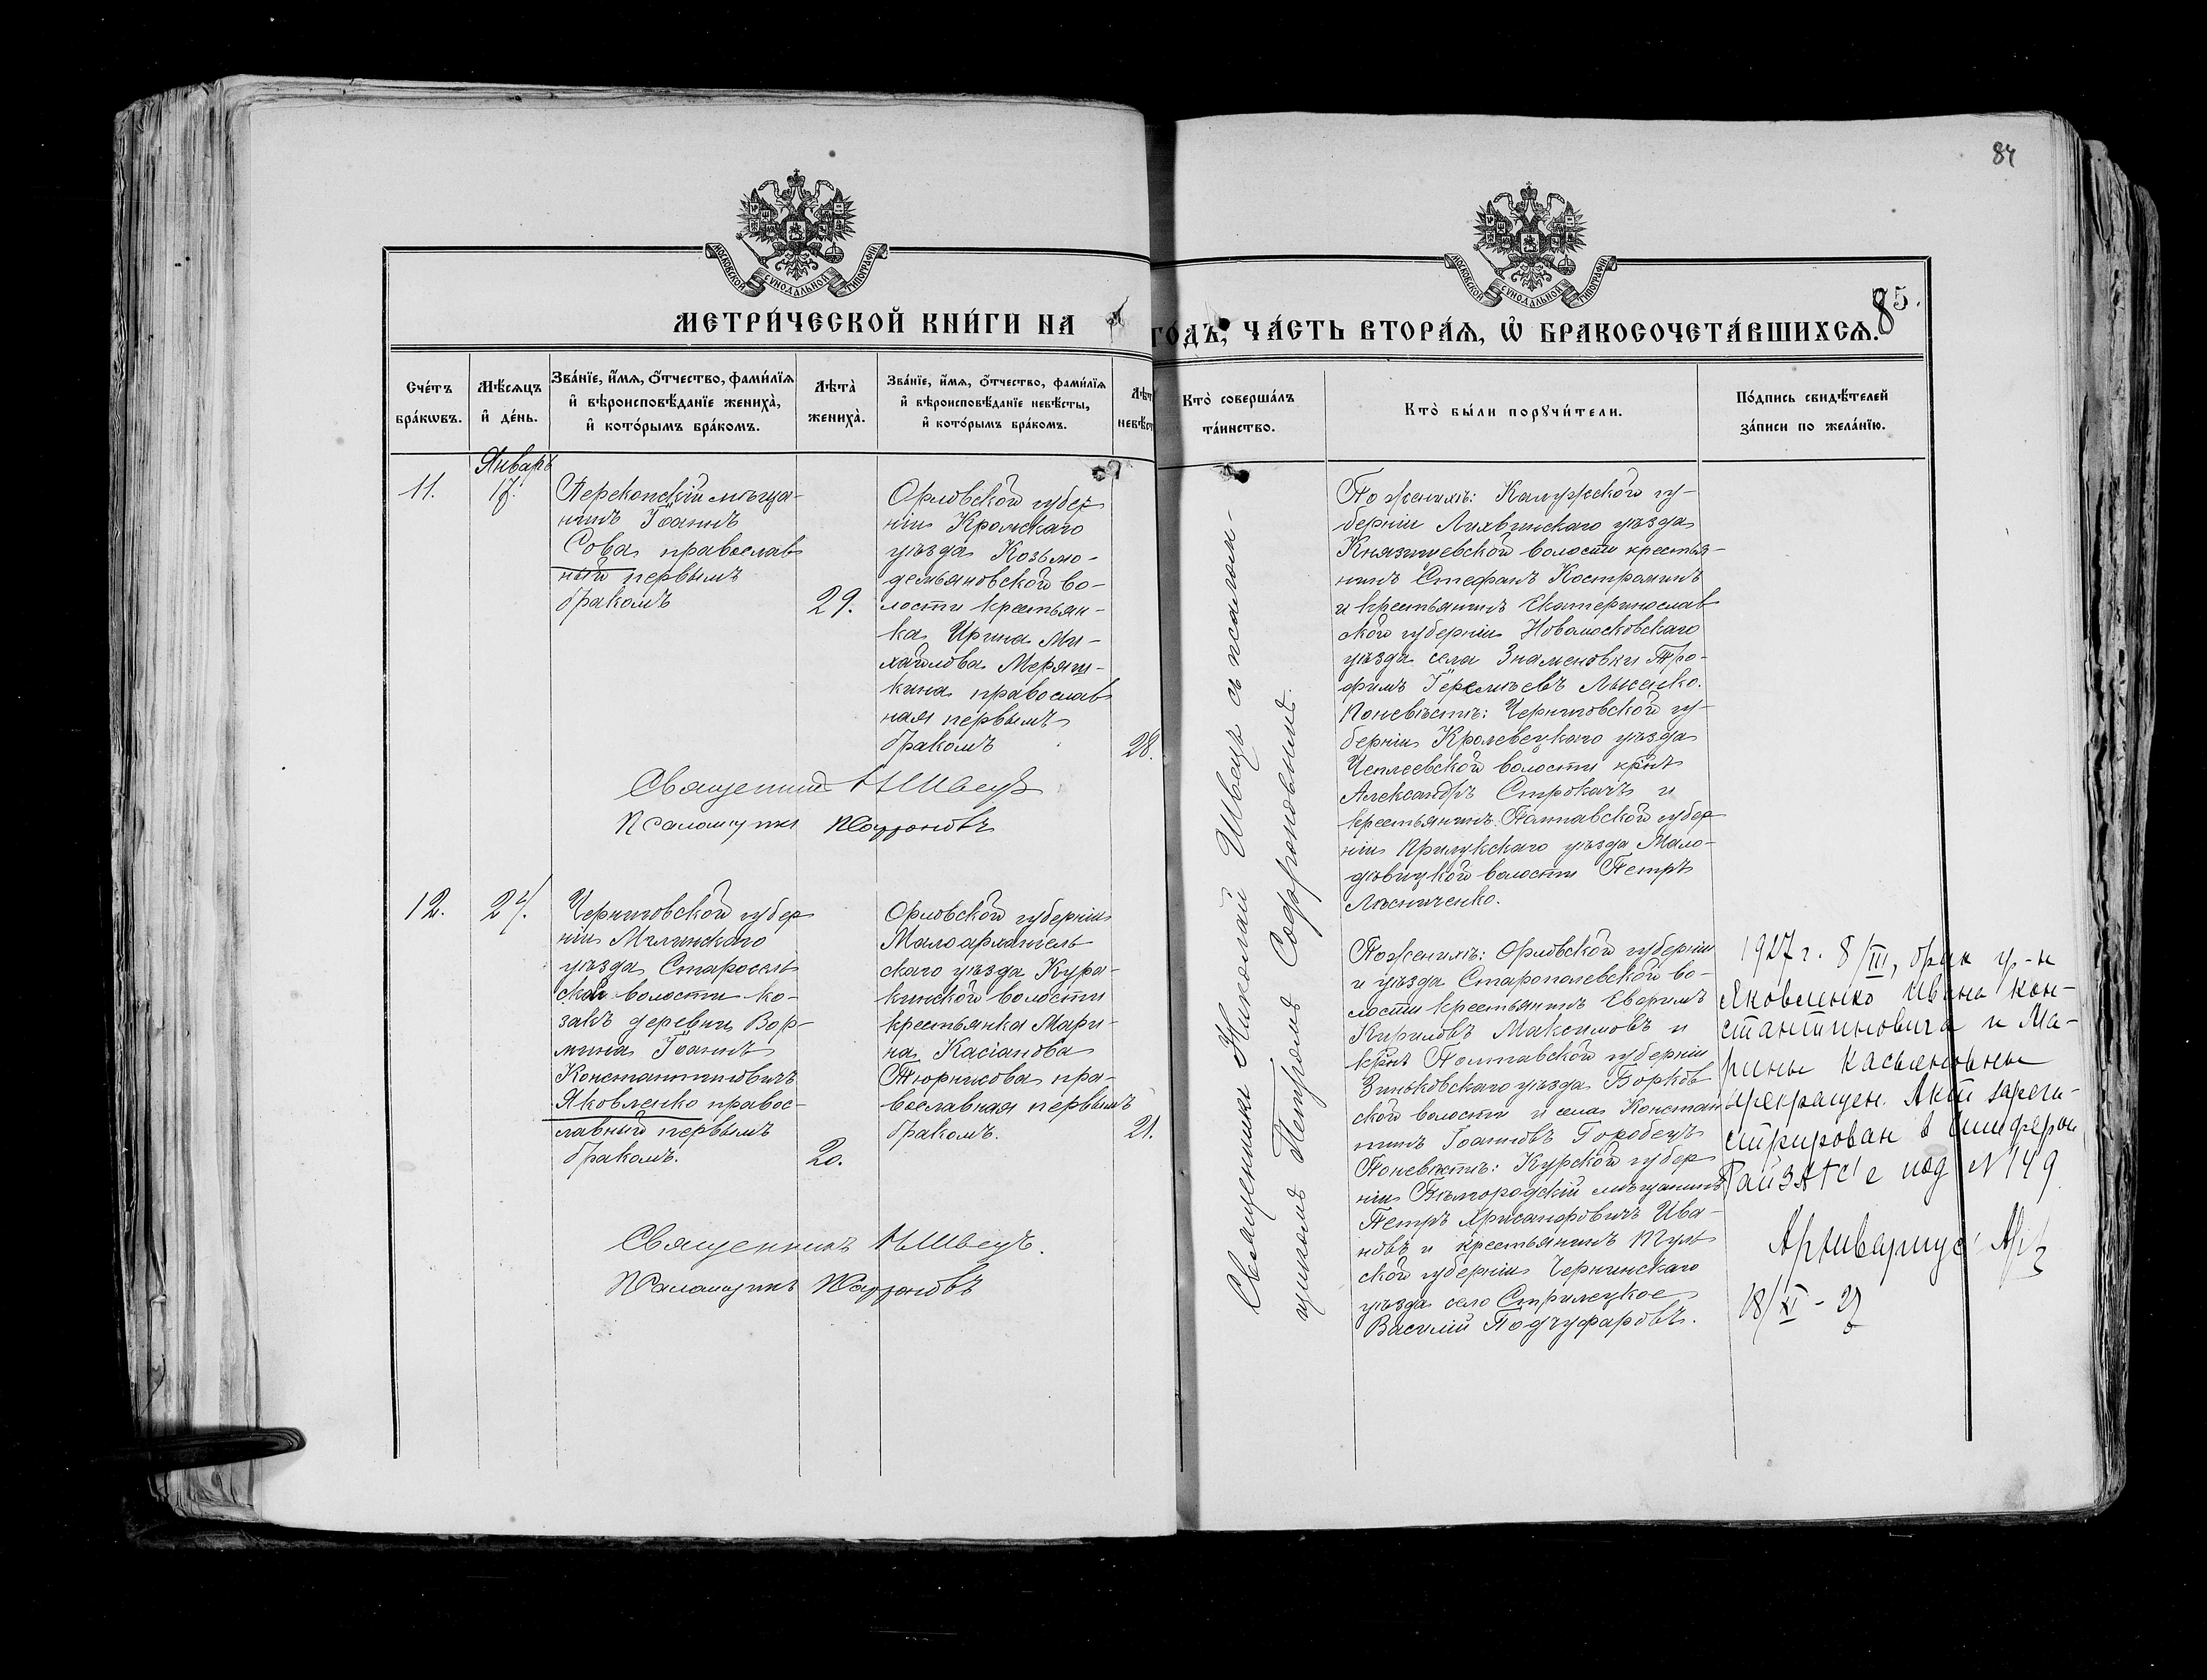 84
МОСКОВСКОЙ СѴНОДАЛЬНОЙ ТИПОГРАФІИ
МОСКОВСКОЙ СѴНОДАЛЬНОЙ ТИПОГРАФІИ
85.
МЕТРИ́ЧЕСКОЙ КНИ́ГИ НА
ГО́ДЪ, ЧА́СТЬ ВТОРА́Ѧ, Ѽ БРАКОСОЧЕТА́ВШИХСѦ.
Сче́тъ
бра́кѡвъ.
Мѣ́сѧцъ
и҆ де́нь.
Зва́нїе, и҆́мѧ, ѻ҆́тчество, фами́лїѧ
и҆ вѣроисповѣ́данїе жениха̀,
и҆ кото́рымъ бра́комъ.
Лѣ́та̀
жениха̀.
Зва́нїе, и҆́мѧ, ѻ҆́тчество, фами́лїѧ
и҆ вѣроисповѣ́данїе невѣ́сты,
и҆ кото́рымъ бра́комъ.
Лѣт
невѣст
Кто̀ соверша́лъ
та́инство.
Кто̀ бы́ли порꙋчи́тели.
По́дпись свидѣ́телей
за́писи по жела́нїю.
Январь
11.
17.
Перекопскій мѣща-
нинъ Іоаннъ
Сова православ
ный первымъ
бракомъ
29.
Орловской губер
ніи Кромскаго
уѣзда Козьмо-
демьяновской во-
лости крестьян-
ка Ирина Ми-
хайлова Меряш-
кина православ
ная первымъ
бракомъ
28.
Священникъ Н Швецъ
Псаломщикъ П Софроновъ
Священникъ Николай Швецъ съ псалом-
щикомъ Петромъ Софроновымъ.
По женихѣ: Калужской гу-
берніи Лихвинскаго уѣзда
Князищевской волости крестья-
нинъ Стефанъ Костроминъ
и крестьянинъ Екатеринослав
ской губерніи Новомосковскаго
уѣзда села Знаменовки Тро-
фимъ Іереміевъ Лысенко.
По невѣстѣ: Черниговской гу-
берніи Кролевецкаго уѣзда
Чеплеевской волости крнъ
Александръ Строкачъ и
крестьянинъ Полтавской губер
ніи Прилукскаго уѣзда Мало-
дѣвицкой волости Петръ
Лѣсниченко.
12.
24.
Черниговской губер
ніи Мглинскаго
уѣзда Старосель
ской волости ко-
закъ деревни Вор-
мина Іоаннъ
Константиновичъ
Яковленко правос-
лавный первымъ
бракомъ.
20.
Орловской губерніи
Малоархангель
скаго уѣзда Кура-
кинской волости
крестьянка Мари-
на Касіанова
Тюрикова пра-
вославная первымъ
бракомъ.
21.
Священникъ Н Швецъ.
Псаломщикъ П Софроновъ
По женихѣ: Орловской губерніи
и уѣзда Старополевской во-
лости крестьянинъ Евфимъ
Кириловъ Максимовъ и
крнъ Полтавской губерніи
Зиньковскаго уѣзда Борков
ской волости и села Констан
тинъ Іоанновъ Горобецъ
По невѣстѣ: Курской губер
ніи Бѣлгородскій мѣщанинъ
Петръ Хрисанфовичъ Ива-
новъ и крестьянинъ Туль
ской губерніи Чернинскаго
уѣзда село Стрилецкое
Василій Подчуфаровъ.
1927 г. 8/III, брак гр-н
Яковленко Ивана Кон-
стантиновича и Ма-
рины Касьяновны
прекращен. Акт зареги-
стрирован в Симфероп.
РайЗАГС'е под N 149
Архивариус
18/XI - 27